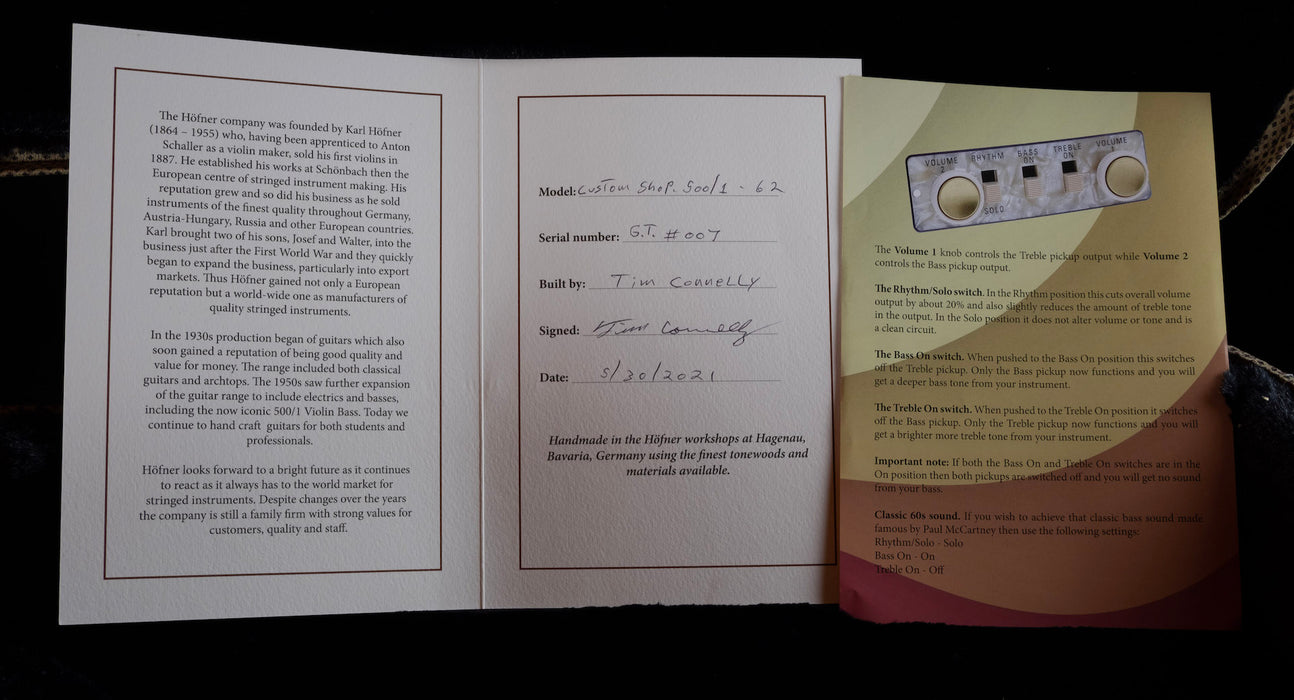 The Höfner company was founded by Karl Höfner
(1864 – 1955) who, having been apprenticed to Anton
Schaller as a violin maker, sold his first violins in
1887. He established his works at Schönbach then the
European centre of stringed instrument making. His
reputation grew and so did his business as he sold
instruments of the finest quality throughout Germany,
Austria-Hungary, Russia and other European countries.
Karl brought two of his sons, Josef and Walter, into the
business just after the First World War and they quickly
began to expand the business, particularly into export
markets. Thus Höfner gained not only a European
reputation but a world-wide one as manufacturers of
quality stringed instruments.
In the 1930s production began of guitars which also
soon gained a reputation of being good quality and
value for money. The range included both classical
guitars and archtops. The 1950s saw further expansion
of the guitar range to include electrics and basses,
including the now iconic 500/1 Violin Bass. Today we
continue to hand craft guitars for both students and
professionals.
Höfner looks forward to a bright future as it continues
to react as it always has to the world market for
stringed instruments. Despite changes over the years
the company is still a family firm with strong values for
customers, quality and staff.
Model: Custom Shop. 500/1 - 62
Serial number: G.T. #007
Built by: Tim Connelly
Signed: Tim Connelly
Date: 5/30/2021
Handmade in the Höfner workshops at Hagenau,
Bavaria, Germany using the finest tonewoods and
materials available.
VOLUME 2 RHYTHM BASS ON TREBLE ON VOLUME 1
SOLO
The Volume 1 knob controls the Treble pickup output while Volume 2
controls the Bass pickup output.
The Rhythm/Solo switch. In the Rhythm position this cuts overall volume
output by about 20% and also slightly reduces the amount of treble tone
in the output. In the Solo position it does not alter volume or tone and is
a clean circuit.
The Bass On switch. When pushed to the Bass On position this switches
off the Treble pickup. Only the Bass pickup now functions and you will
get a deeper bass tone from your instrument.
The Treble On switch. When pushed to the Treble On position it switches
off the Bass pickup. Only the Treble pickup now functions and you will
get a brighter more treble tone from your instrument.
Important note: If both the Bass On and Treble On switches are in the
On position then both pickups are switched off and you will get no sound
from your bass.
Classic 60s sound. If you wish to achieve that classic bass sound made
famous by Paul McCartney then use the following settings:
Rhythm/Solo - Solo
Bass On - On
Treble On - Off